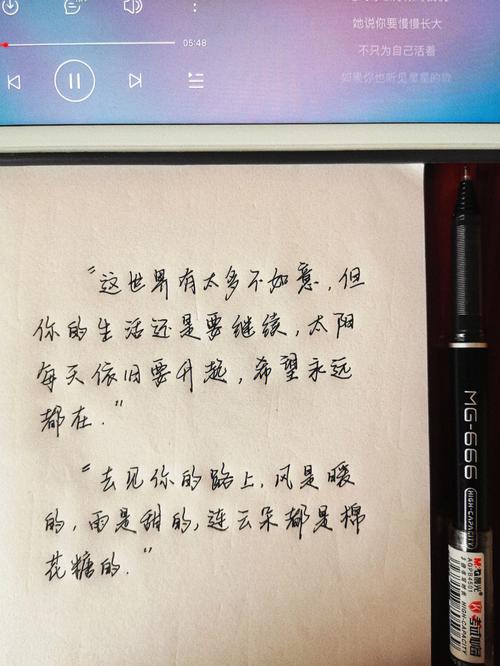 05:48
她说你要慢慢长大
不只为自己活着
如果你也听见星星的歌
"这世界有太多不如意,但
你的生活还是要继续,太阳
每天依旧要升起,希望永远
都在."
"去见你的路上,风是暖
的,雨是甜的,连云朵都是棉
花糖的."
MG-666
HIGH-CAPACITY
M&G晨光
AGPB4501
考试必备
HIGH-CAPACITY